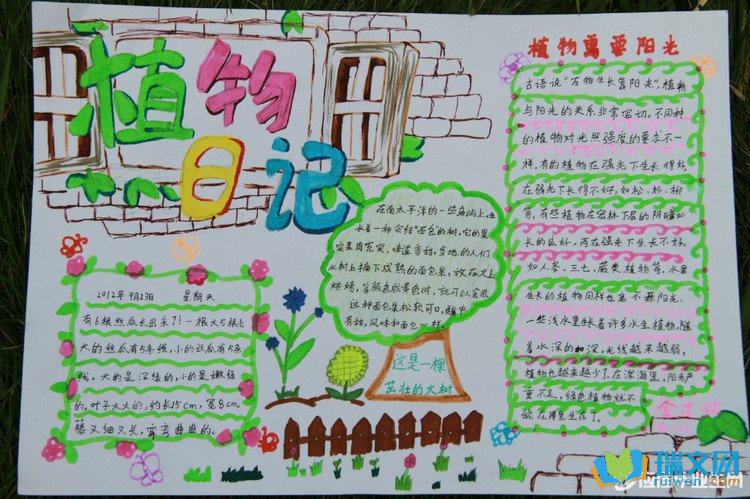 植物
日记
植物需要阳光
古语说“万物生长靠阳光”,植物
与阳光的关系非常密切。不同种
的植物对光照强度的要求不一
样,有的植物在强光下生长得好,
在弱光下长得不好,如松、杉、柳
等,有些植物在密林下层的阴暗处
长的良好,而在强光下生长不好,
如人参、三七、蕨类植物等,水里
生长的植物同样也离不开阳光,
一些浅水里长着许多水生植物,随
着水深的加深,光线越来越弱,
植物也越来越少了,在深海里,阳光严
重不足,绿色植物就不
能在那里生存了。
在南太平洋的一些岛屿上,生
长着一种会结“面包的树”,它的果
实果肉充实、味道香甜,当地的人们
从树上摘下成熟的面包果,放在火上
烘烤,等颜色成黄色时,就可以食用
这种面包果松软可口,酸中
有甜,风味和面包一样。
这是一棵
茁壮的大树
2012年9月23日 星期天
有6根丝瓜长出来了!一根大5根小
大的丝瓜有5条线,小的丝瓜有5条
线。大的是深绿的,小的是嫩绿
的,叶子大大的,约长15cm,宽8cm,
藤又细又长,弯弯曲曲的。
瑞文网